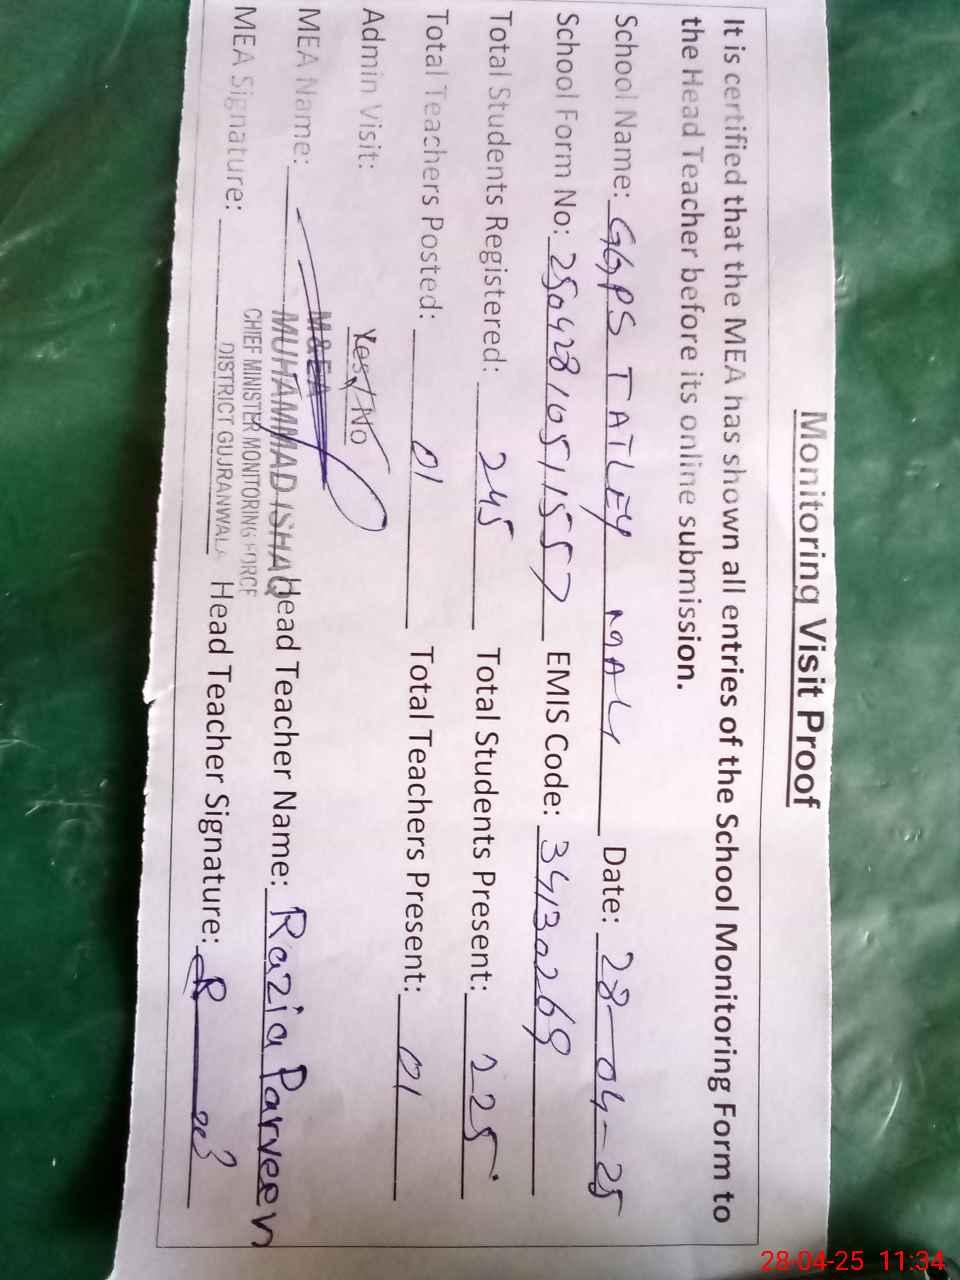 Monitoring Visit Proof
It is certified that the MEA has shown all entries of the School Monitoring Form to
the Head Teacher before its online submission.
School Name: GGPS TATLEY MALI Date: 28-04-25
School Form No: 250428105155 EMIS Code: 34130269
Total Students Registered: 245 Total Students Present: 225
Total Teachers Posted: 01 Total Teachers Present: 01
Admin Visit: Yes / No
M&EA
MEA Name: MUHAMMAD ISHAQ Head Teacher Name: Razia Parveen
CHIEF MINISTER MONITORING FORCE
MEA Signature: DISTRICT GUJRANWALA Head Teacher Signature:
28-04-25 11:34